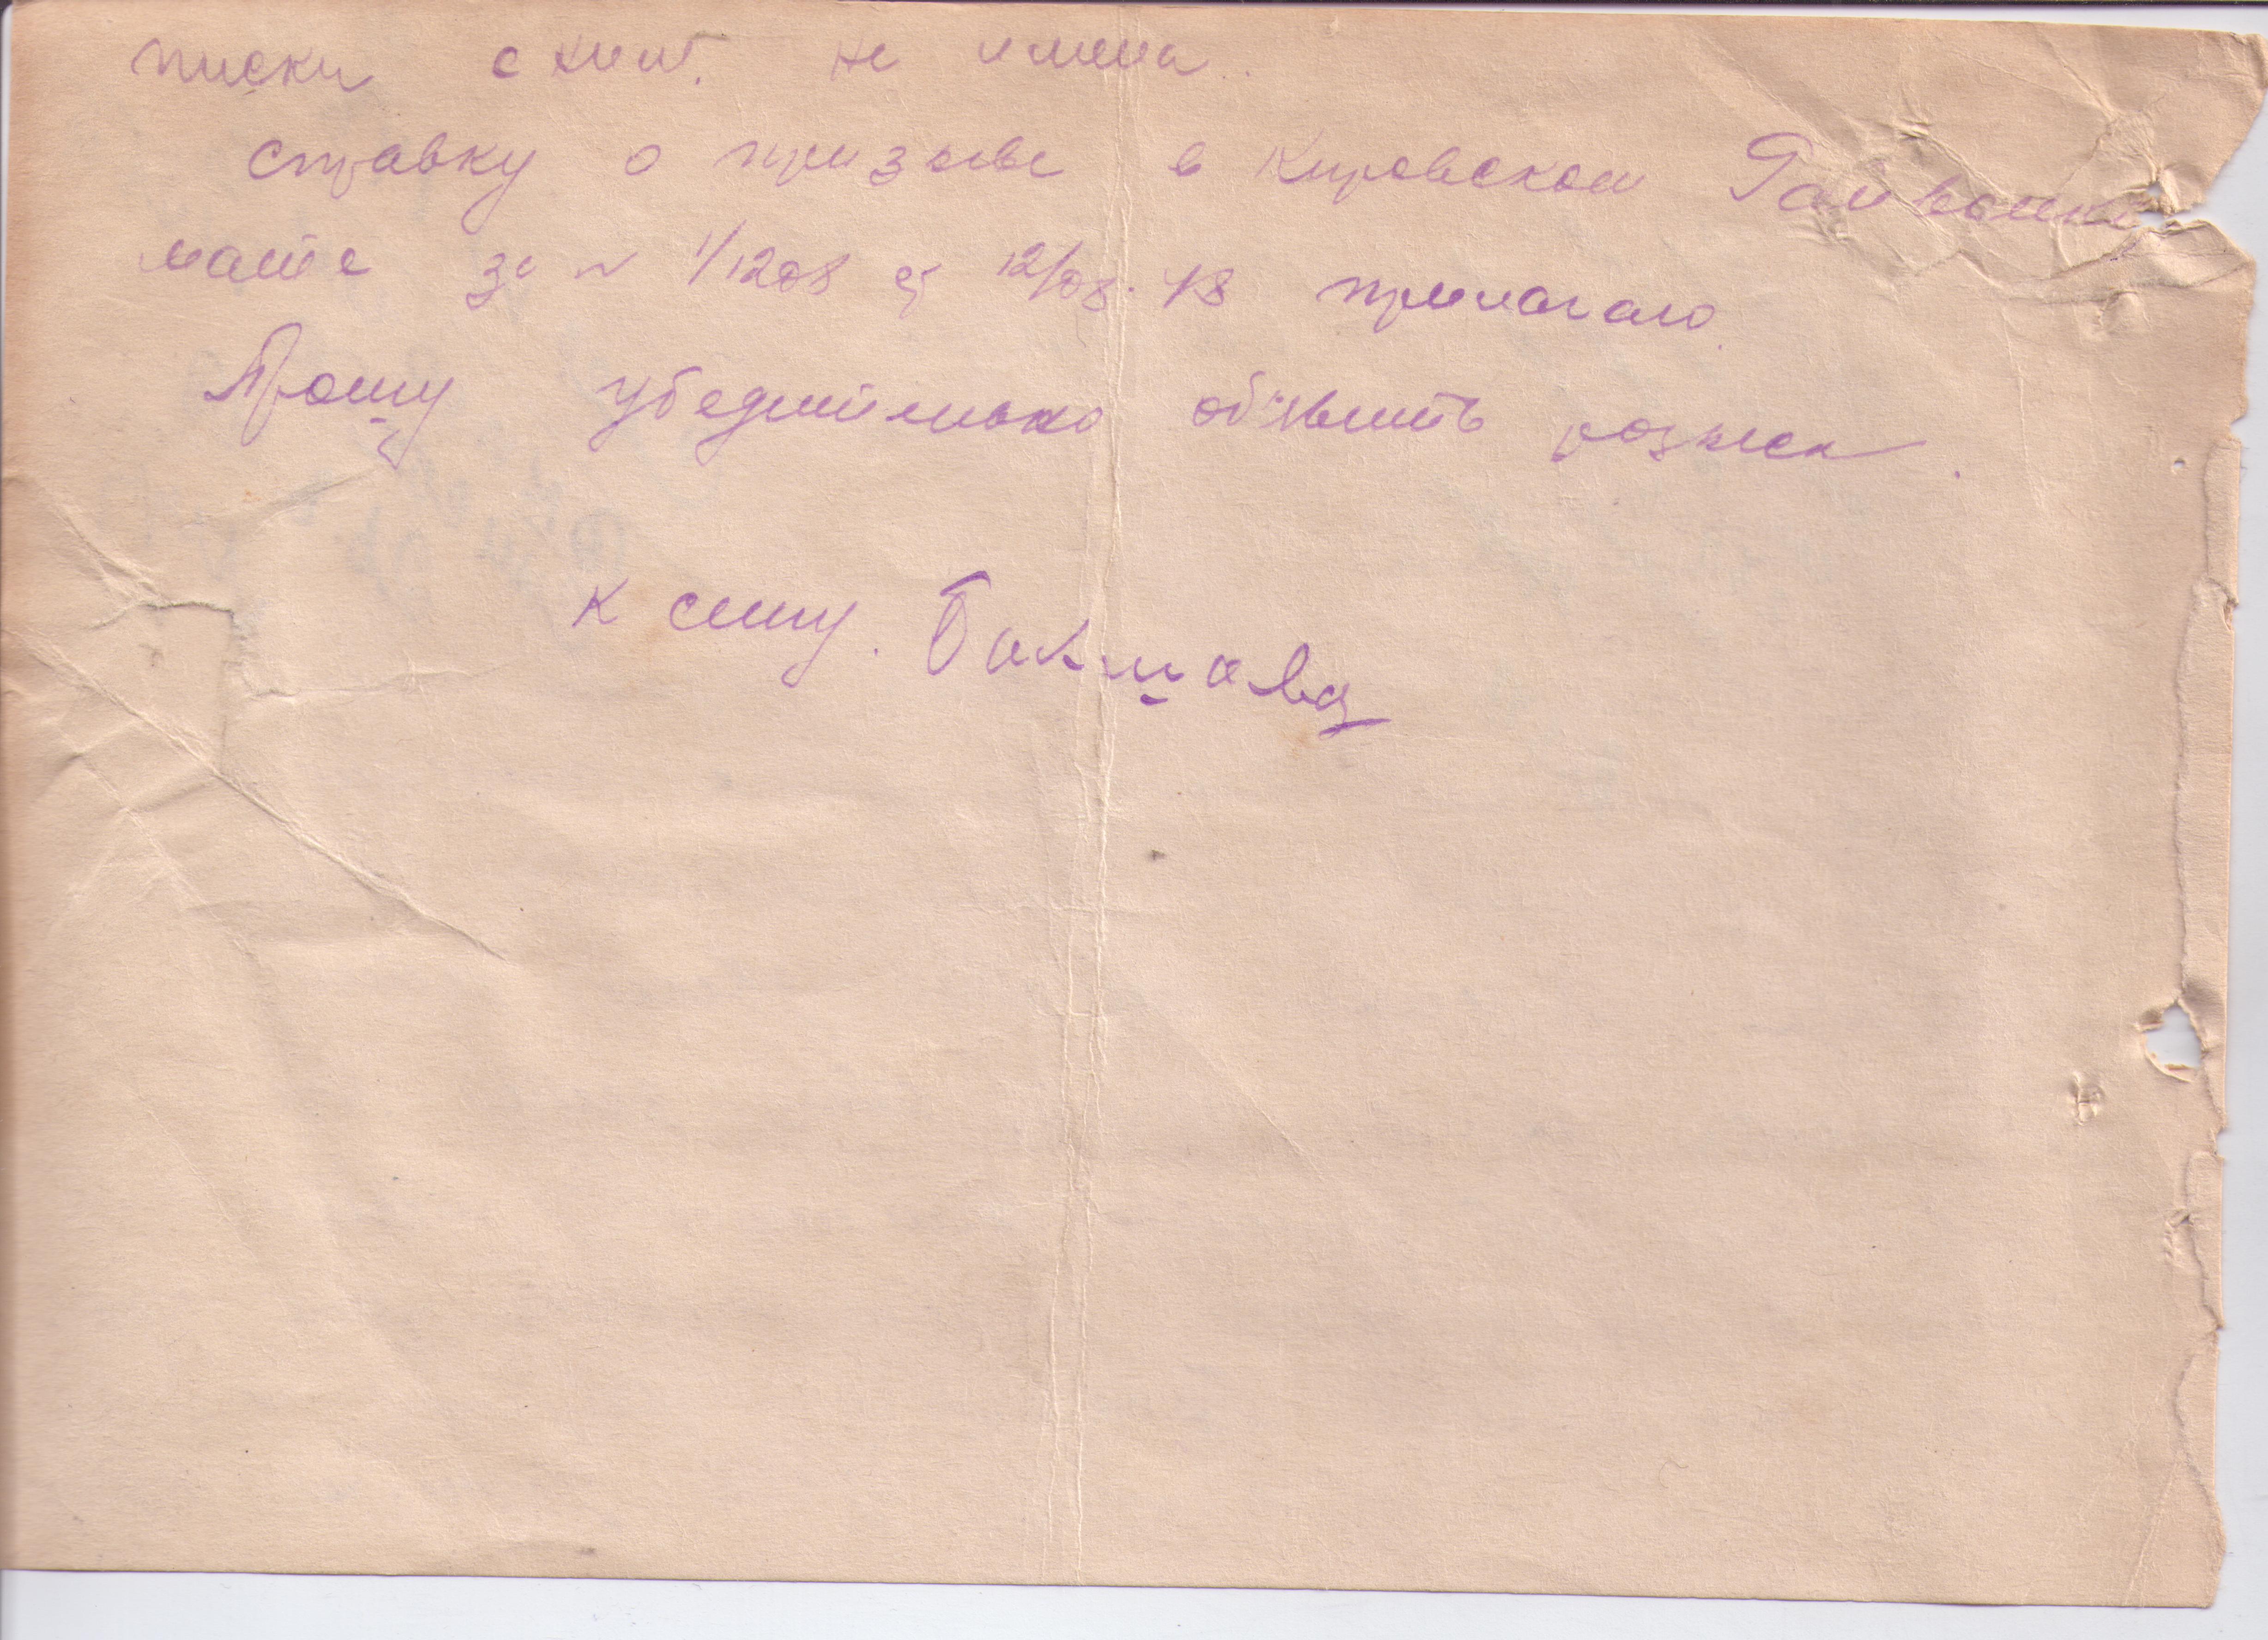 писки с ним. не имела.
справку о призыве в Кировском Райвоенко
мате за № 1/1208 от 12/08.48 прилагаю.
Прошу убедительно объявить розыск.
к сему. Бакшаева